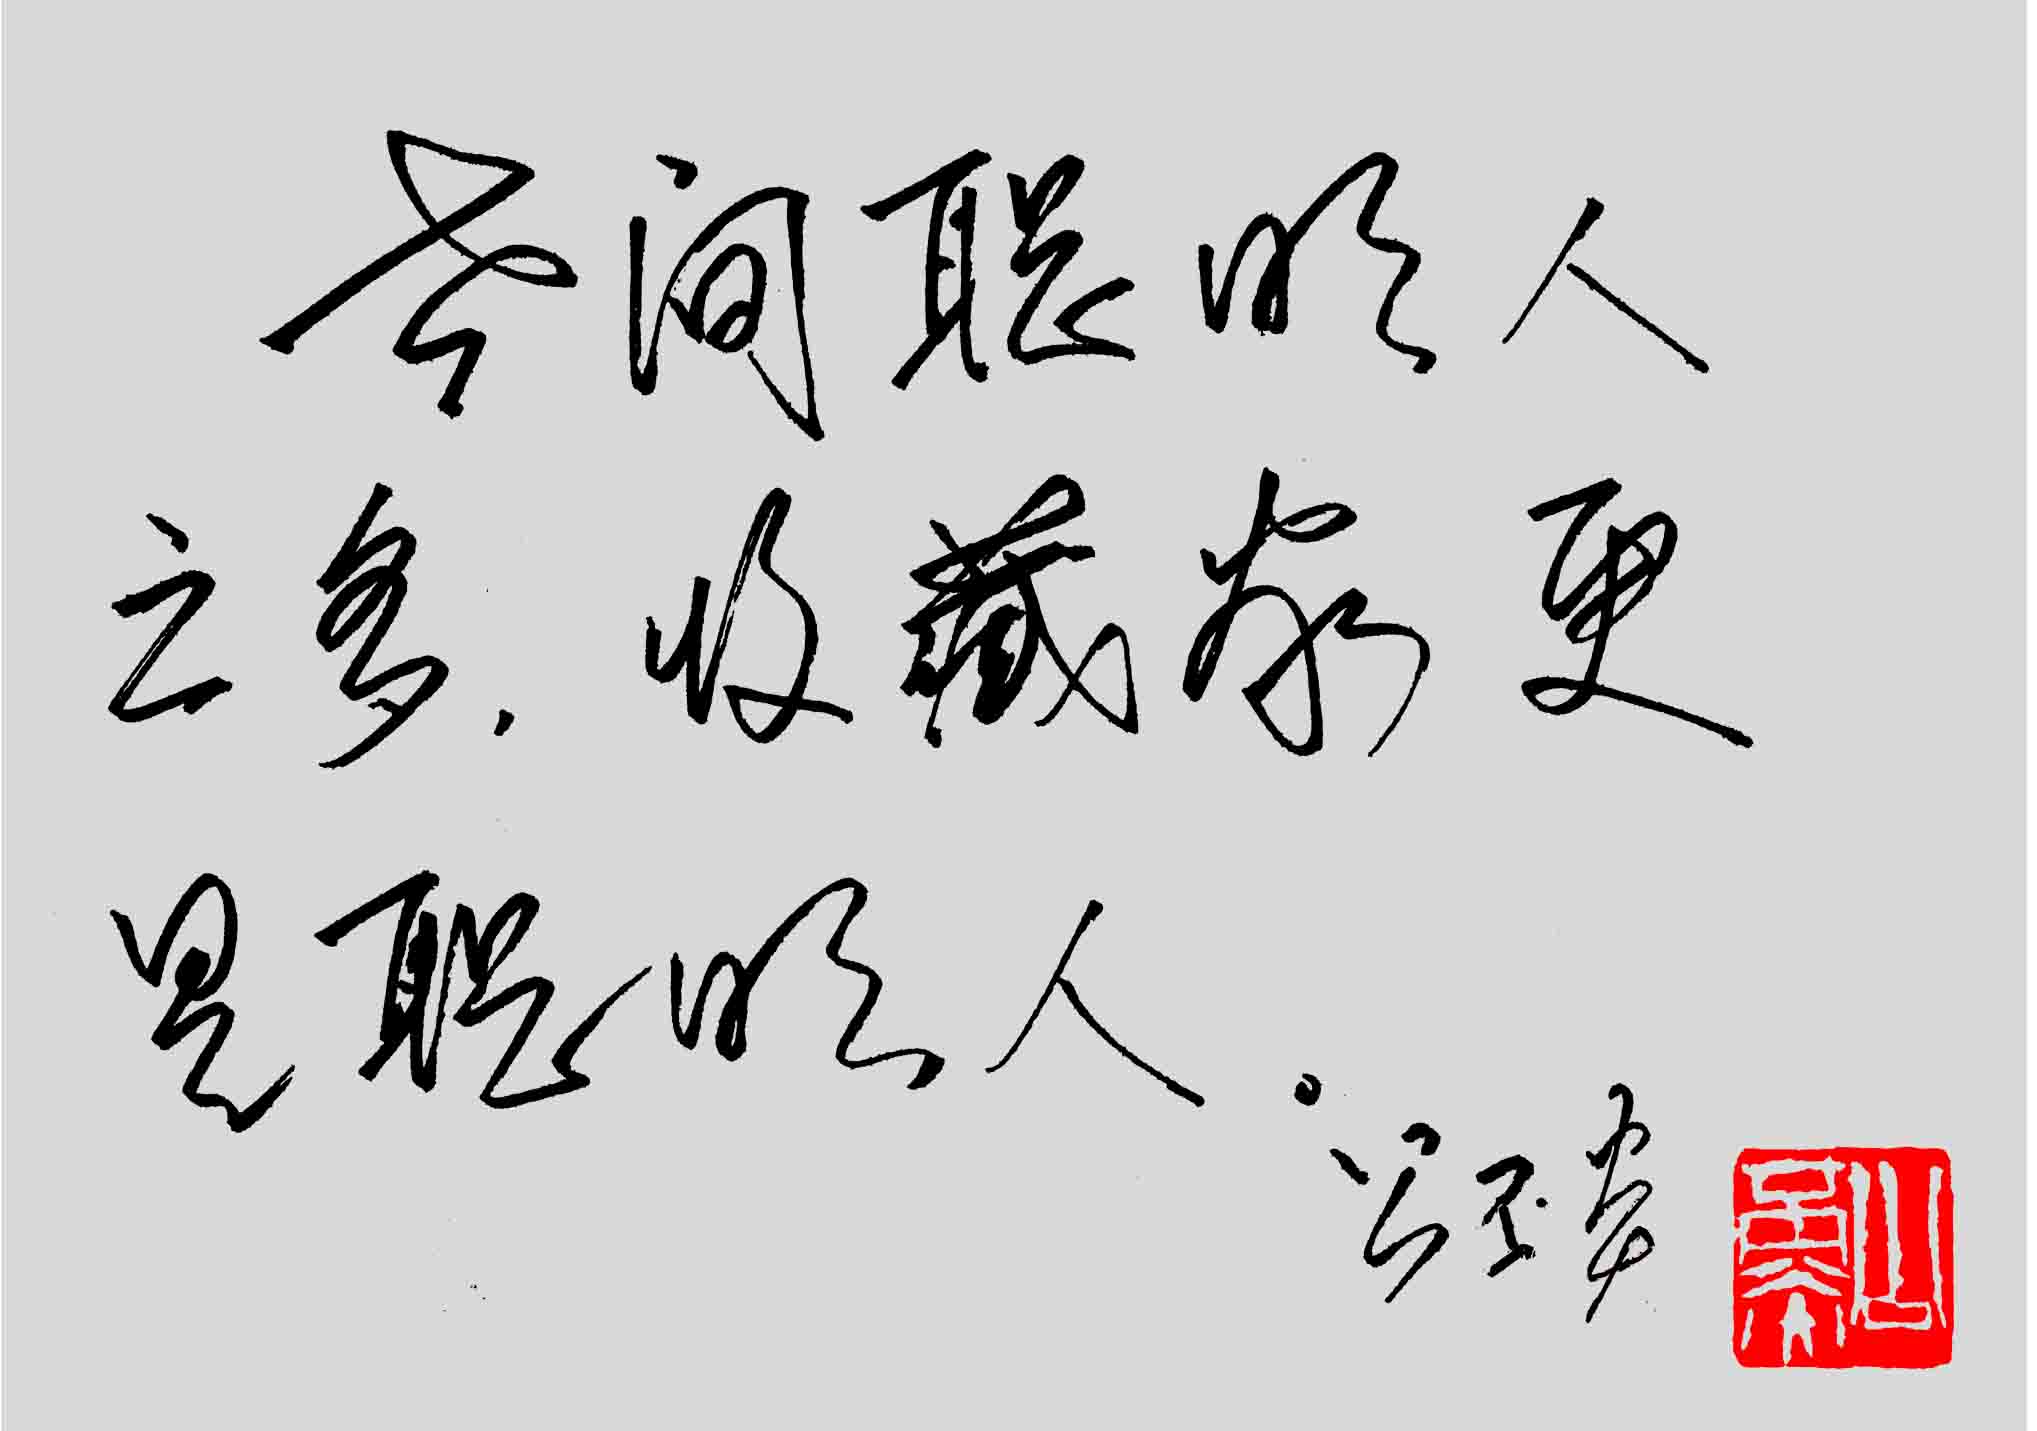 世间聪明人
之多，收藏家更
是聪明人。